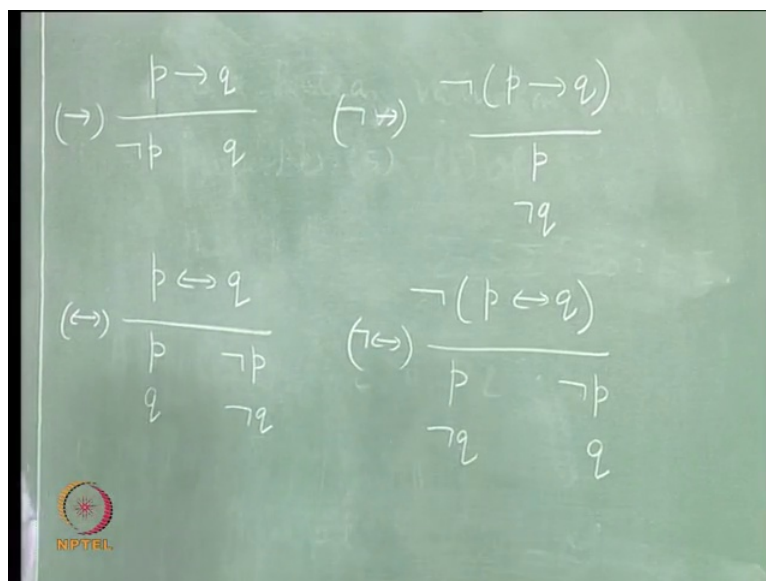 (→) p → q
¬p q
(¬→) ¬(p → q)
p
¬q
(↔) p ↔ q
p ¬p
q ¬q
(¬↔) ¬(p ↔ q)
p ¬p
¬q q
NPTEL